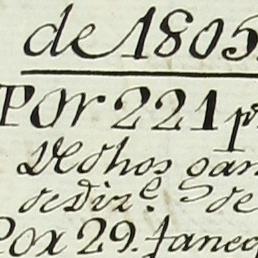 de 1805.
Por 221 p
Dchos gan
de Diz.e de
Por 29. faneg